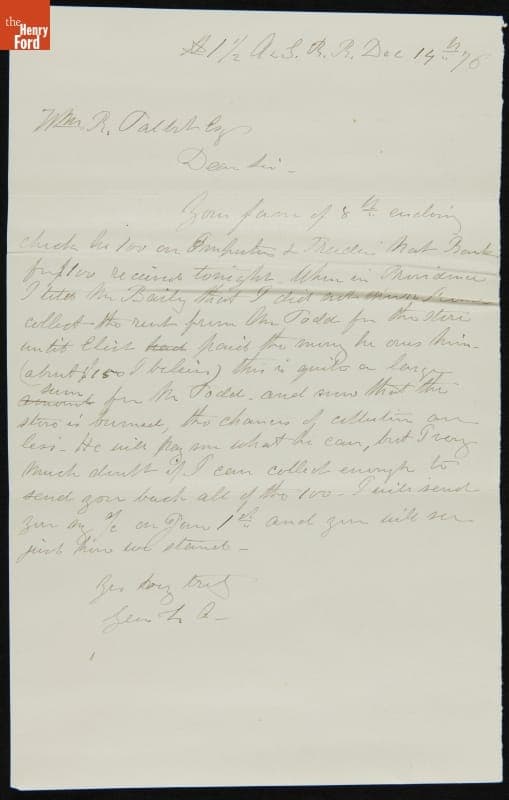 the
Henry
Ford
# 1 1/2 A & G. R. R. Dec 14th 76
Wm R. Talbot Esq
Dear Sir -
Your favor of 8th enclosing
check no 100 on Importers & Traders Nat Bank
for $100 received tonight. When in Providence
I told Mr Baily that I did not
collect the rent from Mr Todd for the store
until Elist had paid the money he owes him -
(about $150 I believe) this is quite a large
sum
amount for Mr Todd - and now that the
store is burned, the chances of collection are
less - He will pay me what he can, but I very
much doubt if I can collect enough to
send you back all of the 100 - I will send
you my a/c on Jany 1st and you will see
just how we stand -
Yrs very truly
Geo